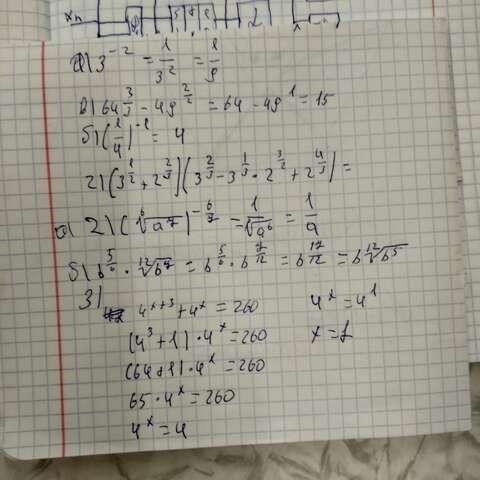 Xn
2
а) 3^{-2} = \frac{1}{3^2} = \frac{1}{9}
в) 64^{\frac{3}{3}} - 49^{\frac{2}{2}} = 64 - 49^1 = 15
б) (\frac{1}{4})^{-1} = 4
г) (3^{\frac{1}{3}} + 2^{\frac{2}{3}})(3^{\frac{2}{3}} - 3^{\frac{1}{3}} · 2^{\frac{3}{2}} + 2^{\frac{4}{3}}) =
а) 2) (\sqrt[6]{a^7})^{-\frac{6}{7}} = \frac{1}{\sqrt[6]{a^6}} = \frac{1}{a}
б) b^{\frac{5}{6}} · \sqrt[12]{b^7} = b^{\frac{5}{6}} · b^{\frac{7}{12}} = b^{\frac{17}{12}} = b\sqrt[12]{b^5}
3)
4^{x+3} + 4^x = 260
(4^3 + 1) · 4^x = 260
(64 + 1) · 4^x = 260
65 · 4^x = 260
4^x = 4
4^x = 4^1
x = 1